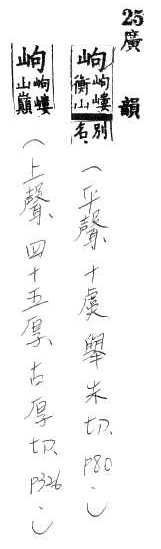 25廣韻
岣岣嶁衡山別名
（平聲、十虞舉朱切、P80。）
岣岣嶁山巔
（上聲、四十五厚、古厚切、P326。）